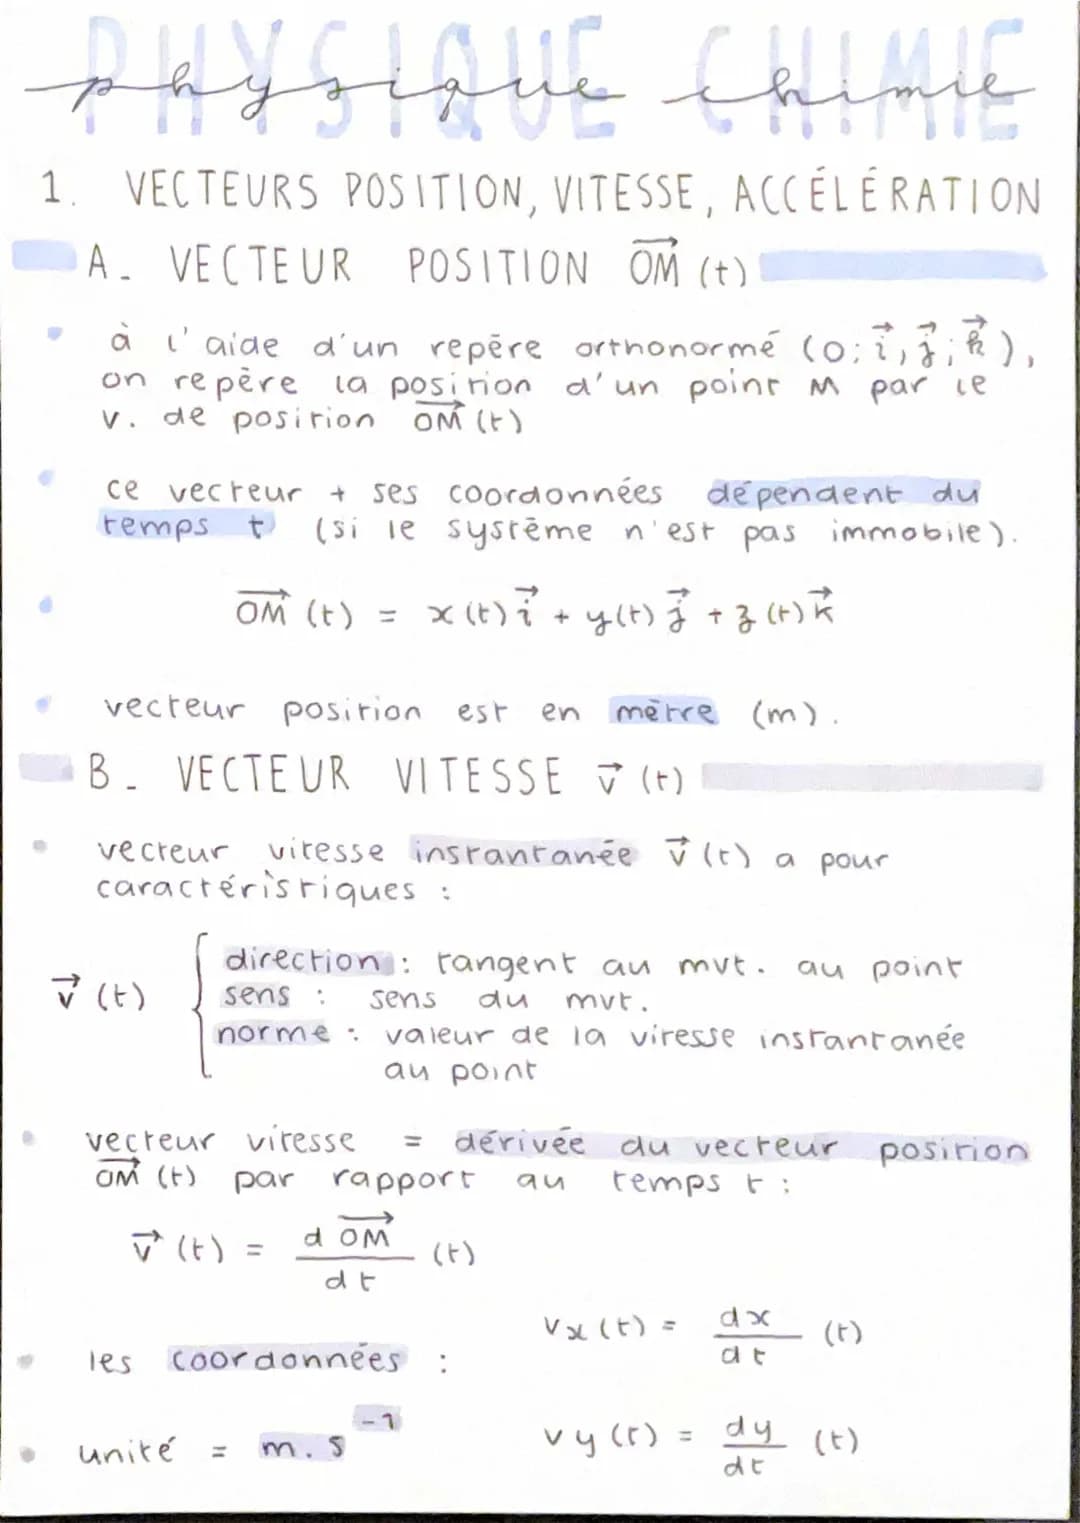 PHYSIQUE CHIMIE
physique chimie
1. VECTEURS POSITION, VITESSE, ACCÉLÉRATION
A- VECTEUR POSITION OM⃗ (t)
à l'aide d'un repère orthonormé (O; i⃗, j⃗; k⃗),
on repère la position d'un point M par le
v. de position OM⃗ (t)
ce vecteur + ses coordonnées dépendent du
temps t (si le système n'est pas immobile).
OM⃗ (t) = x(t) i⃗ + y(t) j⃗ + z(t) k⃗
vecteur position est en mètre (m).
B- VECTEUR VITESSE v⃗ (t)
vecteur vitesse instantanée v⃗ (t) a pour
caractéristiques :
v⃗ (t) { direction : tangent au mvt. au point
sens : sens du mvt.
norme : valeur de la vitesse instantanée
au point
vecteur vitesse = dérivée du vecteur position
OM⃗ (t) par rapport au temps t :
v⃗ (t) = d OM⃗ / dt (t)
vx(t) = dx/dt (t)
les coordonnées :
vy(t) = dy/dt (t)
unité = m.s⁻¹